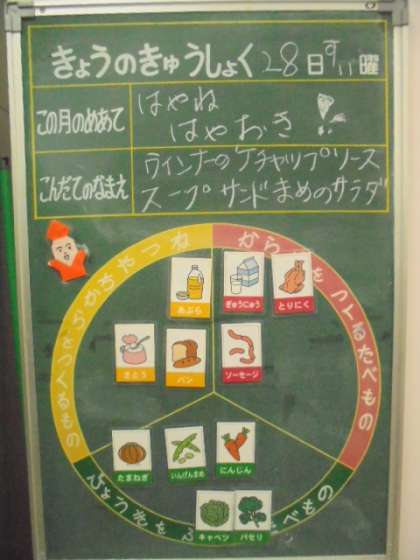 きょうのきゅうしょく 28日 すい曜
この月のめあて
はやね
はやおき!
こんだてのなまえ
ウインナーのケチャップソース
スープ サンド まめのサラダ
ちからやねつ
をつくるもの
から
をつくるたべもの
あぶら
ぎゅうにゅう
とりにく
さとう
パン
ソーセージ
たまねぎ
いんげんまめ
にんじん
キャベツ
パセリ
べもの